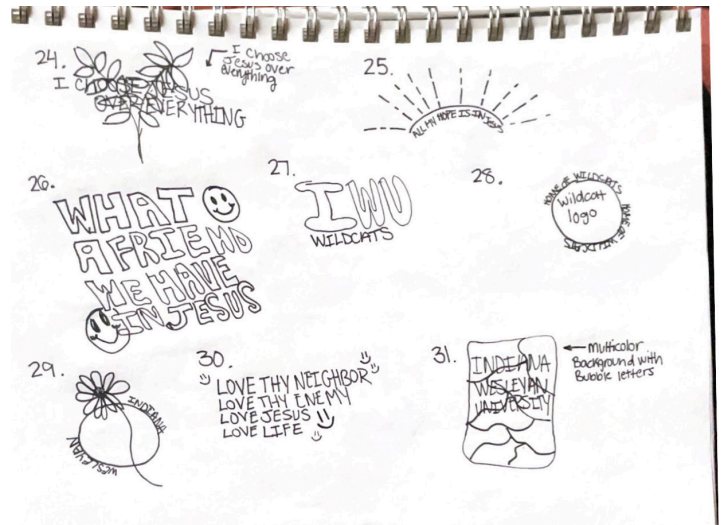 24.
I CHOOSE JESUS
OVER EVERYTHING
I choose
Jesus over
everything
25.
ALL MY HOPE IS IN JESUS
26.
WHAT
A FRIEND
WE HAVE
IN JESUS
27.
IWU
WILDCATS
28.
HOME OF WILDCATS
HOME OF WILDCATS
Wildcat
logo
29.
INDIANA
WESLEYAN
30.
LOVE THY NEIGHBOR
LOVE THY ENEMY
LOVE JESUS
LOVE LIFE
31.
INDIANA
WESLEYAN
UNIVERSITY
multicolor
Background with
Bubble letters